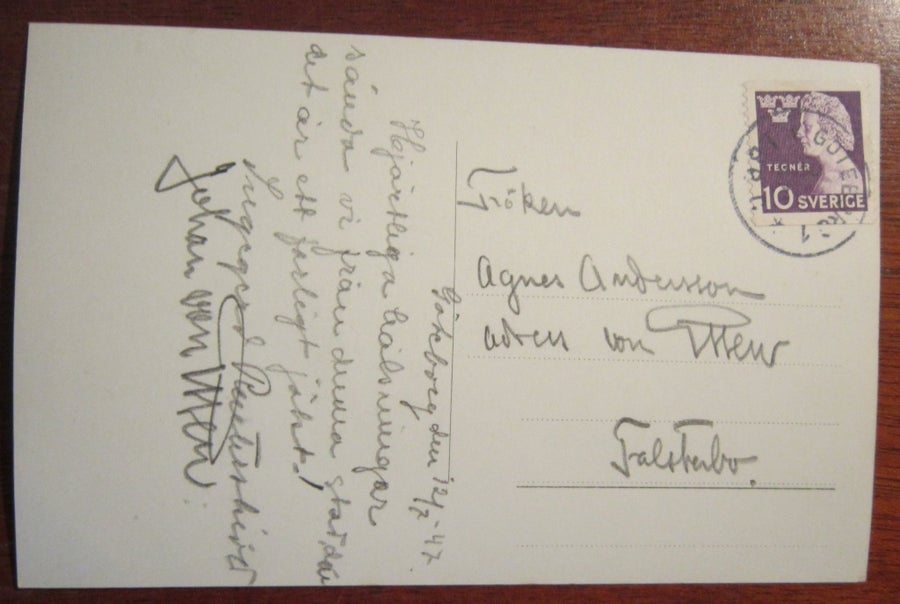 Göteborg den 12/7 -47.
Hjärtliga hälsningar
sända vi från denna stad där
det är ett farligt jäkt!
Ingegerd
Johan von
Fröken
Agnes Andersson
adress von
Falsterbo.
TEGNÉR
10 SVERIGE
GÖTEBORG 1